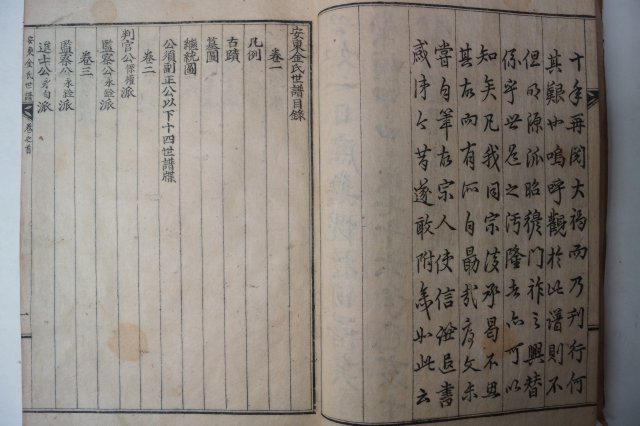 十年再閱大禍而乃刊行何
其艱也嗚呼觀於此譜則不
但明源派昭穆門祚之興替
係乎世足之污隆者亦可以
知矣凡我同宗後承曷不思
其在而有所自勗哉序文未
嘗自筆在宗人使信追書
感時今昔遂敢附歲如此云
安東金氏世譜目錄
卷一
凡例
古蹟
墓圖
繼統圖
公須副正公以下十四世譜牒
卷二
判官公係權派
監察公永銓派
卷三
監察公永銓派
進士公派
安東金氏世譜 卷之首 一